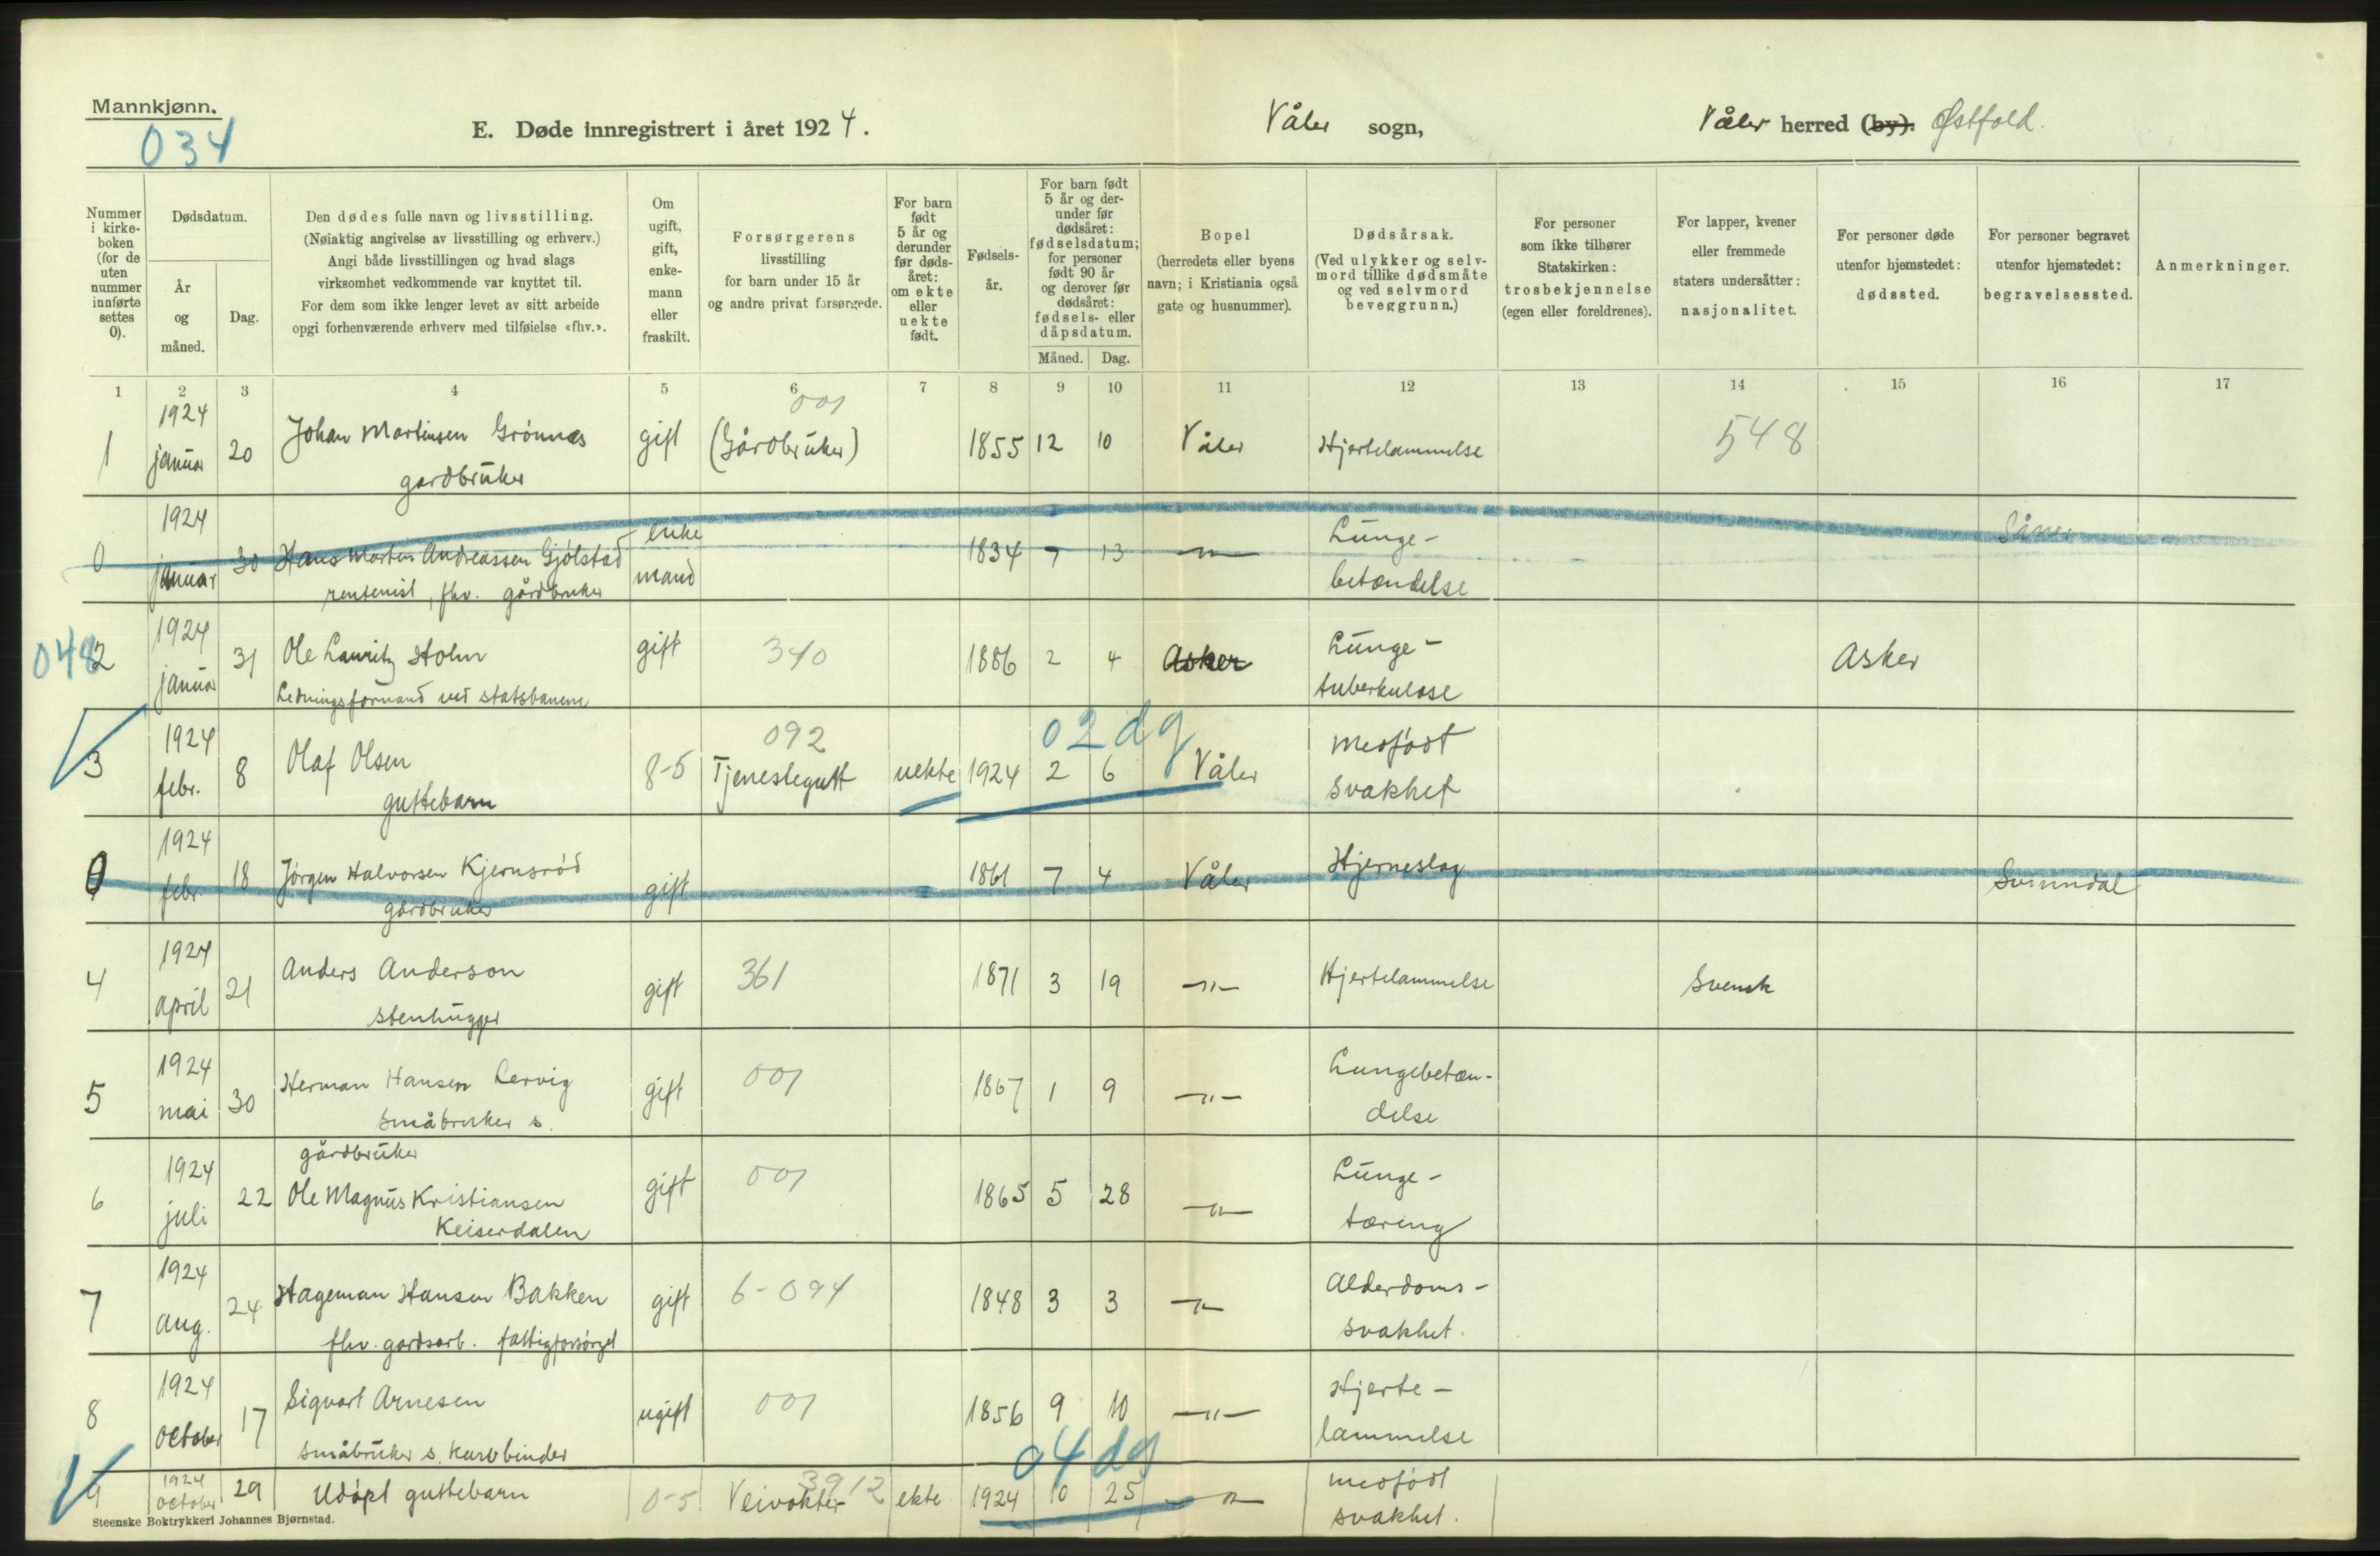 Mannkjønn.
034
E. Døde innregistrert i året 1924.
Våler sogn,
Våler herred (by). Østfold.
Nummer i kirke-boken (for de uten nummer innførte settes 0).
Dødsdatum.
År og måned.
Dag.
Den dødes fulle navn og livsstilling.
(Nøiaktig angivelse av livsstilling og erhverv.)
Angi både livsstillingen og hvad slags
virksomhet vedkommende var knyttet til.
For dem som ikke lenger levet av sitt arbeide
opgi forhenværende erhverv med tilføielse «fhv.».
Om ugift, gift, enke-mann eller fraskilt.
Forsørgerens
livsstilling
for barn under 15 år
og andre privat forsørgede.
For barn født 5 år og derunder før døds-året: om ekte eller uekte født.
Fødsels-år.
For barn født 5 år og der-under før dødsåret: fødselsdatum; for personer født 90 år og derover før dødsåret: fødsels- eller dåpsdatum.
Måned. Dag.
Bopel
(herredets eller byens
navn; i Kristiania også
gate og husnummer).
Dødsårsak.
(Ved ulykker og selv-
mord tillike dødsmåte
og ved selvmord
beveggrunn.)
For personer
som ikke tilhører
Statskirken:
trosbekjennelse
(egen eller foreldrenes).
For lapper, kvener
eller fremmede
staters undersåtter:
nasjonalitet.
For personer døde
utenfor hjemstedet:
dødssted.
For personer begravet
utenfor hjemstedet:
begravelsessted.
Anmerkninger.
1 2 3 4 5 6 7 8 9 10 11 12 13 14 15 16 17
1 1924 januar 20 Johan Martinsen Grønnes gardbruker gift 001 (Gårdbruker) 1855 12 10 Våler Hjertelammelse 548
0 1924 januar 30 Hans Martin Andreassen Gjølstad rentenist, fhv. gårdbruker enke mand 1834 7 13 -"- Lunge-betændelse Såner
048 2 1924 januar 31 Ole Lauritz Holm Ledningsformand ved statsbanene gift 340 1886 2 4 Asker Lunge-tuberkulose Asker
3 1924 febr. 8 Olaf Olsen guttebarn 8-5 092 Tjenestegutt uekte 1924 2 6 02 dg Våler Medfødt svakhet
0 1924 febr. 18 Jørgen Halvorsen Kjernsrød gårdbruker gift 1861 7 4 Våler Hjerneslag Svinndal
4 1924 april 21 Anders Anderson stenhugger gift 361 1871 3 19 -"- Hjertelammelse Svensk
5 1924 mai 30 Herman Hansen Lervig småbruker s. gift 001 1867 1 9 -"- Lungebetæn-delse
6 1924 juli 22 gårdbruker Ole Magnus Kristiansen Keiserdalen gift 001 1865 5 28 -"- Lunge-tæring
7 1924 aug. 24 Hageman Hansen Bakken fhv. gardsarb. fattigforsørget gift 6-094 1848 3 3 -"- Alderdoms-svakhet.
8 1924 october 17 Sigvart Arnesen småbruker s. kurvbinder ugift 001 1856 9 10 -"- Hjerte-lammelse
9 1924 october 29 Udøpt guttebarn 0-5 3912 Veivokter ekte 1924 10 25 04 dg -"- medfødt svakhet.
Steenske Boktrykkeri Johannes Bjørnstad.